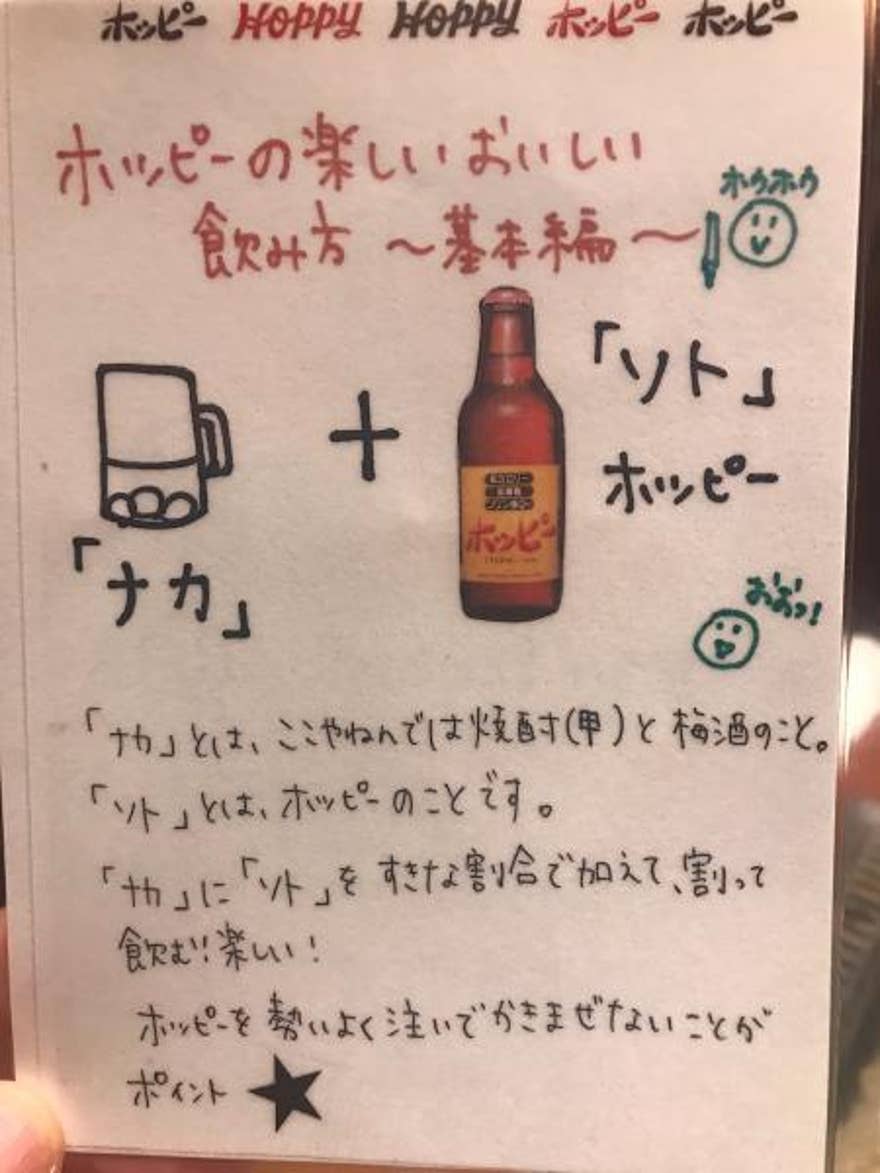 ホッピー HOPPY HOPPY ホッピー ホッピー
ホッピーの楽しいおいしい
飲み方 〜基本編〜
ホウホウ
+
「ソト」
ホッピー
ホッピー
「ナカ」
おおっ!
「ナカ」とは、ここやねんでは焼酎(甲)と梅酒のこと。
「ソト」とは、ホッピーのことです。
「ナカ」に「ソト」をすきな割合で加えて、割って
飲む!楽しい!
ホッピーを勢いよく注いでかきまぜないことが
ポイント ★